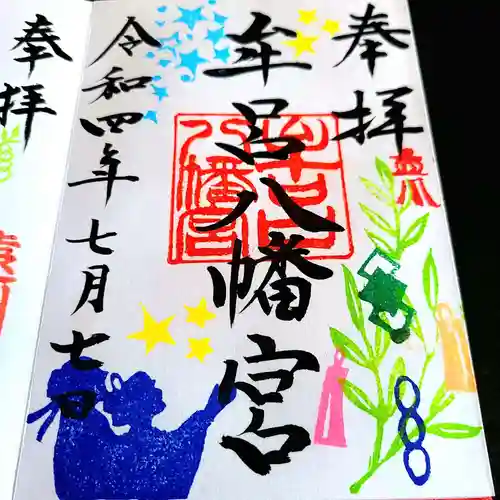 奉拝
牟呂八幡宮
令和四年七月七日
牟呂
八幡宮
奉拝